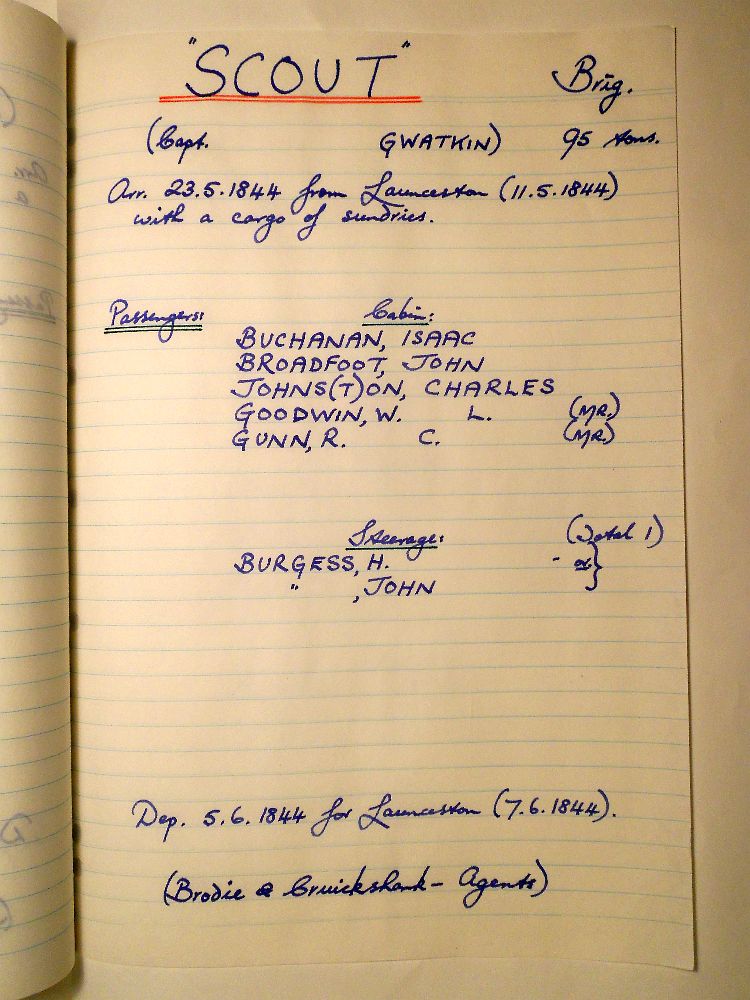 "SCOUT" Brig.
(Capt. GWATKIN) 95 tons.
Arr. 23.5.1844 from Launceston (11.5.1844)
with a cargo of sundries.
Passengers: Cabin:
BUCHANAN, ISAAC
BROADFOOT, JOHN
JOHNS(T)ON, CHARLES
GOODWIN, W. L. (MR.)
GUNN, R. C. (MR)
Steerage: (Total 1)
BURGESS, H. - or}
" , JOHN
Dep. 5.6.1844 for Launceston (7.6.1844).
(Brodie & Cruickshank - Agents)